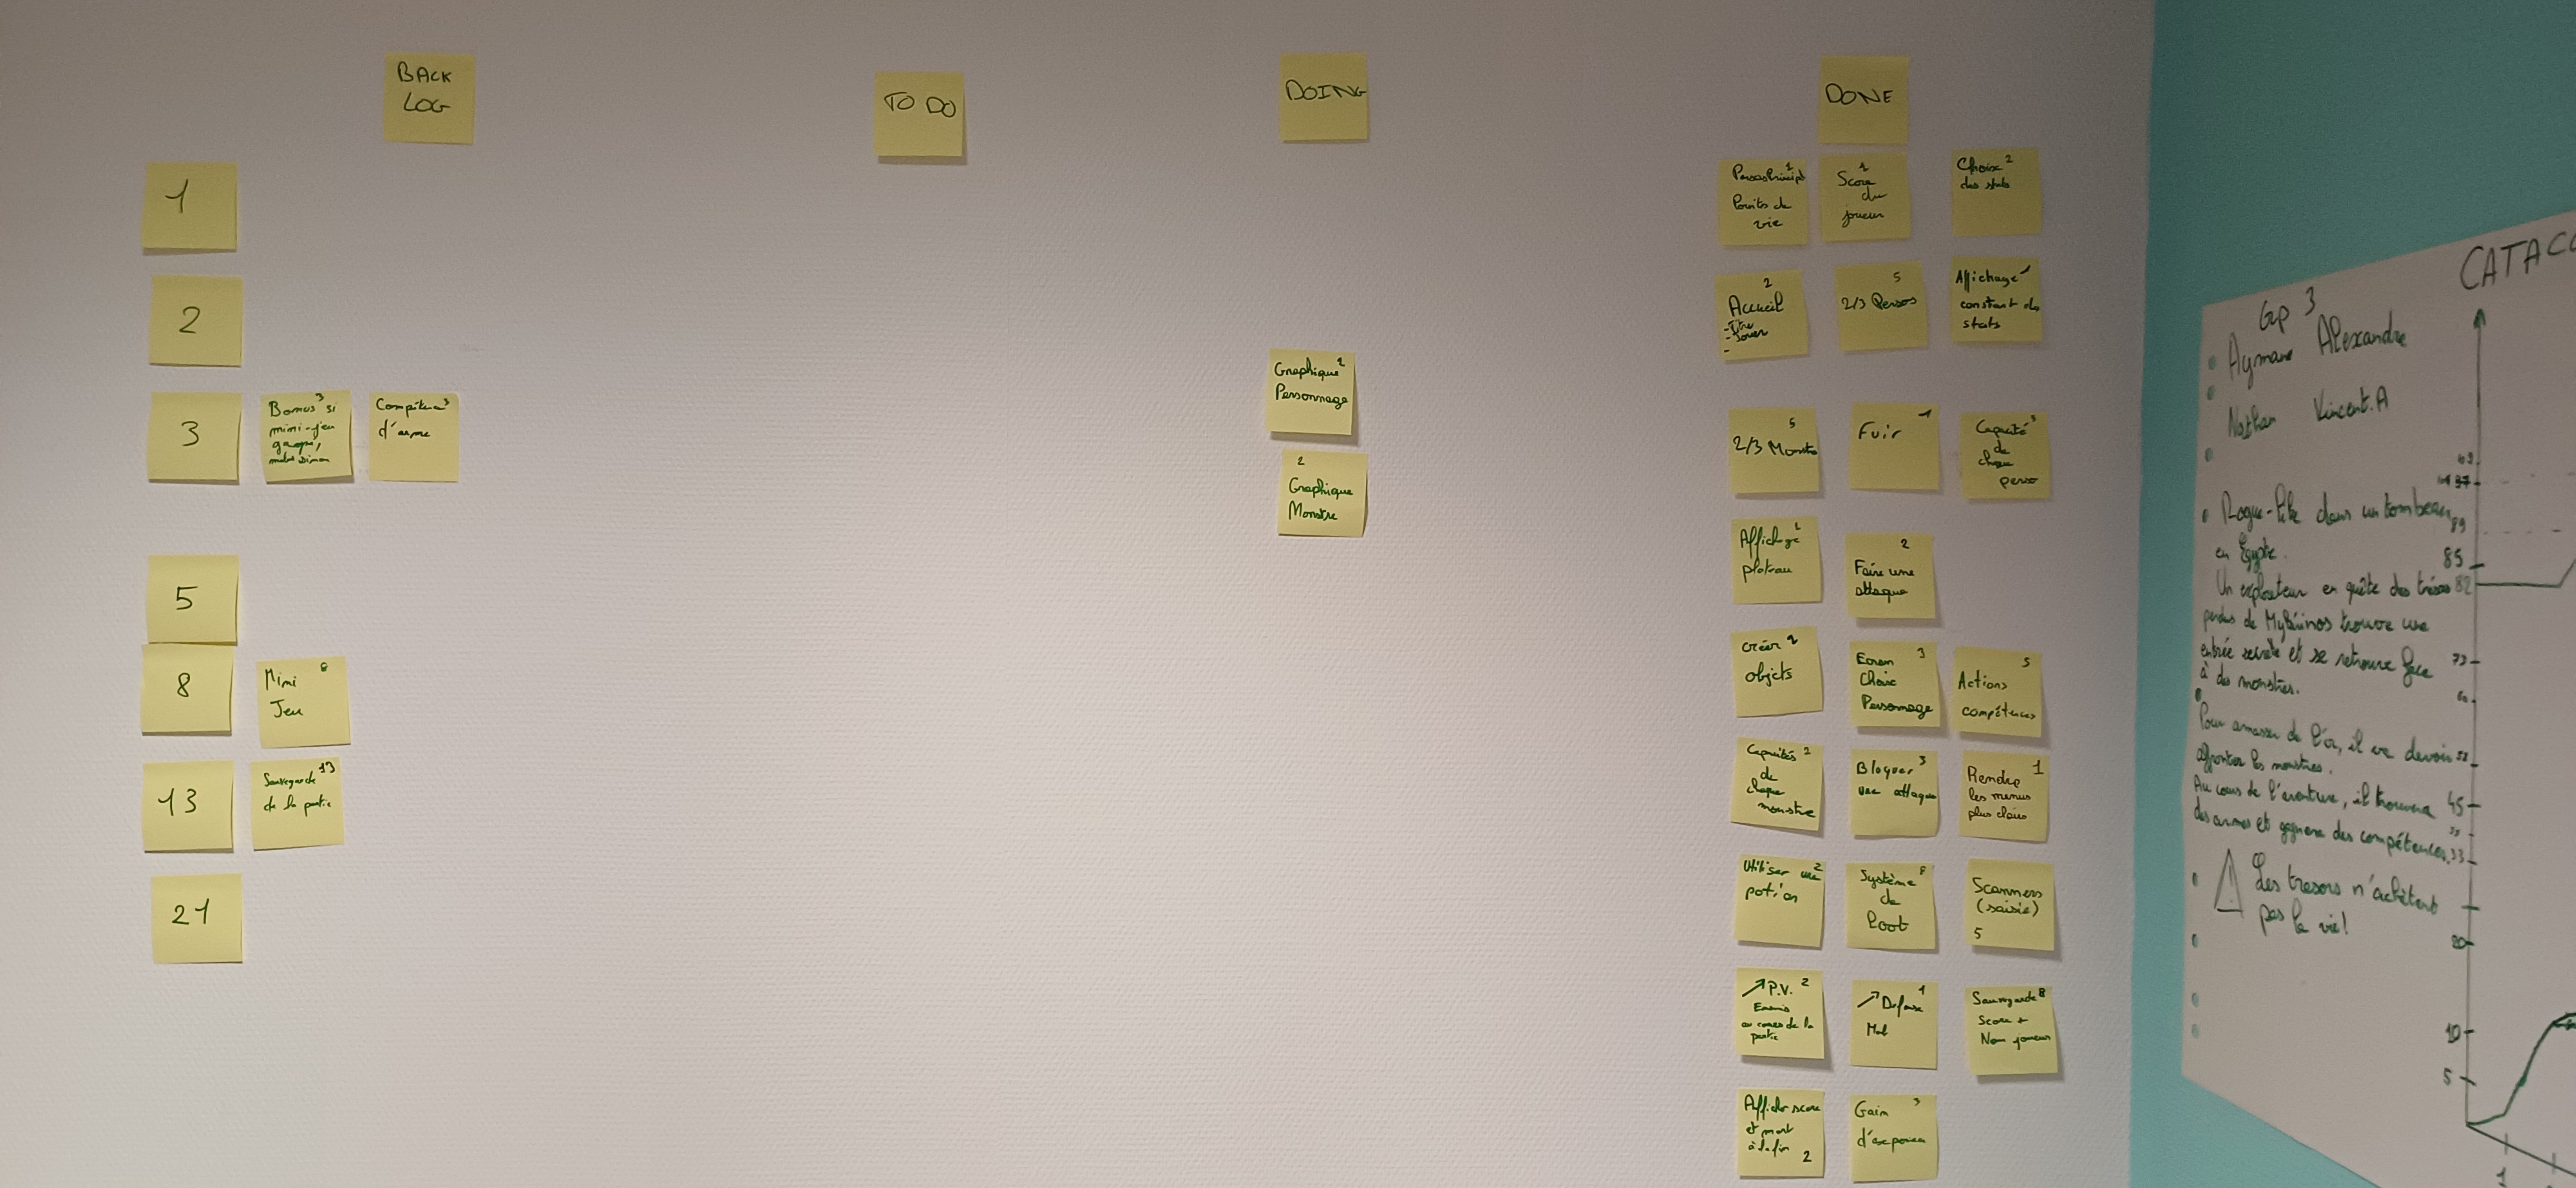 BACK
LOG
TO DO
DOING
DONE
1
2
3
Bonus 3 si
mini-jeu
gagné,
3
d'arme
5
8
Mini 8
Jeu
13
Sauvegarde 13
de la partie
21
Graphique 2
Personnage
2
Graphique
Monstre
Points de
vie
1
Score
du
joueur
Choix 2
des stats
2
Accueil
- Titre
- Jouer
-
5
2/3 Persos
Affichage 1
constant des
stats
5
2/3 Monstr
Fuir 1
Capacité 3
de
chaque
perso
Affichage
plateau
2
Faire une
attaque
créer 2
objets
Ecran 3
Choix
Personnage
5
Actions
compétences
Capacités 2
de
chaque
monstre
Bloquer 3
une attaque
Rendre 1
les menus
plus clairs
Utiliser une 2
potion
Système 8
de
Loot
Scanners
(saisie)
5
↗ P.V. 2
Ennemis
au cours de la
partie
↗ Defense 1
Sauvegarde 8
Score +
Nom joueur
Afficher score
et mort
à la fin 2
Gain 3
CATACO
Gp 3
Aymane Alexandre
Nathan Vincent.A
Rogue-like dans un tombeau
en Égypte.
Un explorateur en quête des trésors
perdus de Mykérinos trouve une
entrée secrète et se retrouve face
à des monstres.
Pour amasser de l'or, il va devoir
affronter les monstres.
Au cours de l'aventure, il trouvera
des armes et gagnera des compétences.
Les tresors n'achètent
pas la vie!
89
85
82
73
60
45
33
20
10
5
1